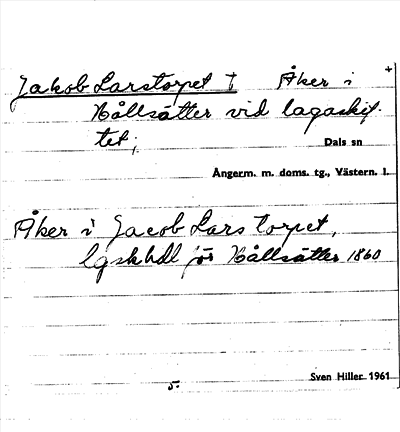 Jakob Larstorpet † Åker i +
Hållsätter vid lagaskif-
tet;
Dals sn
Ångerm. m. doms. tg., Västern. l.
Åker i Jacob Lars torpet,
lgskhdl för Hållsätter 1860
Sven Hiller 1961
5.